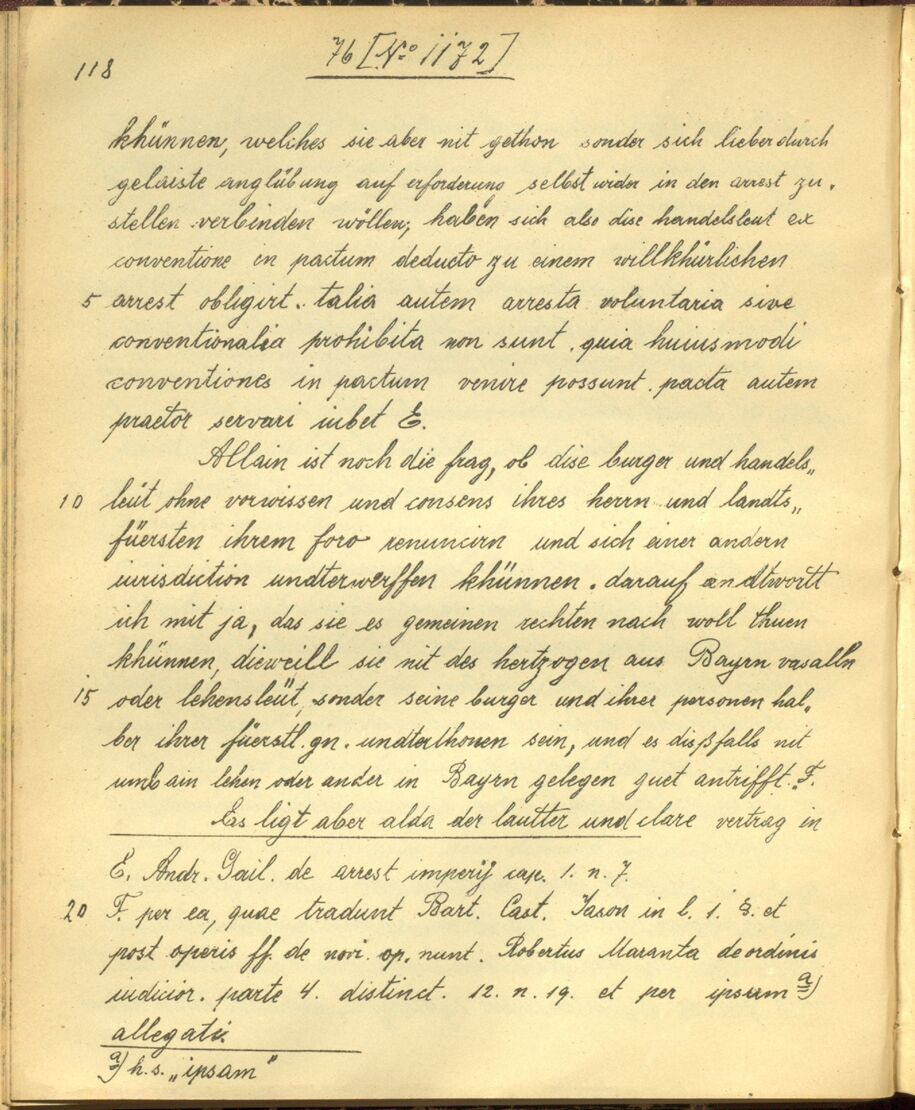 118
76 [No 1172]
khünnen, welches sie aber nit gethon sonder sich lieber durch
gelaiste anglübung auf erforderung selbst wider in den arrest zu„
stellen verbinden wöllen; haben sich also dise handelsleut ex
conventione in pactum deducto zu einem willkhürlichen
5 arrest obligirt. talia autem arresta voluntaria sive
conventionalia prohibita non sunt. quia huiusmodi
conventiones in pactum venire possunt. pacta autem
praetor servari iubet E.
Allain ist noch die frag, ob dise burger und handels„
10 leüt ohne vorwissen und consens ihres herrn und landts„
füersten ihrem foro renuncirn und sich einer andern
iurisdiction undterwerffen khünnen. darauf andtwortt
ich mit ja, das sie es gemeinen rechten nach woll thuen
khünnen, dieweill sie nit des hertzogen aus Bayrn vasalln
15 oder lehensleüt, sonder seine burger und ihrer personen hal„
ber ihrer füerstl. gn. undterthonen sein, und es dißfalls nit
umb ain lehen oder ander in Bayrn gelegen guet antrifft. F.
Es ligt aber alda der lautter und clare vertrag in
E. Andr. Gail. de arrest imperij cap. 1. n. 7.
20 F. per ea, quae tradunt Bart. Cast. Jason in l. 1. §. et
post operis ff. de novi. op. nunt. Robertus Maranta de ordinis
iudicior. parte 4. distinct. 12. n. 19. et per ipsum a)
allegati.
a) h.s. „ipsam"